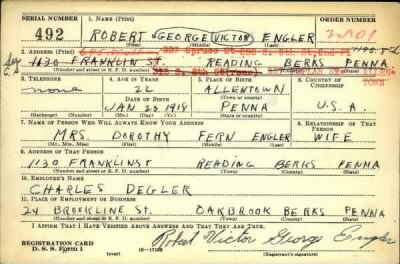 SERIAL NUMBER 1. NAME (Print) ORDER NUMBER
492 ROBERT GEORGE (VICTOR) ENGLER
(First) (Middle) (Last)
2. ADDRESS (Print)
1130 FRANKLIN ST. READING BERKS PENNA
(Number and street or R. F. D. number) (Town) (County) (State)
3. TELEPHONE 4. AGE IN YEARS 5. PLACE OF BIRTH 6. COUNTRY OF CITIZENSHIP
none 22 ALLENTOWN
DATE OF BIRTH
JAN 23 1918 PENNA U.S.A.
(Mo.) (Day) (Yr.) (State or country)
7. NAME OF PERSON WHO WILL ALWAYS KNOW YOUR ADDRESS 8. RELATIONSHIP OF THAT PERSON
MRS. DOROTHY FERN ENGLER WIFE
(Mr., Mrs., Miss) (First) (Middle) (Last)
9. ADDRESS OF THAT PERSON
1130 FRANKLIN ST READING BERKS PENNA
(Number and street or R. F. D. number) (Town) (County) (State)
10. EMPLOYER'S NAME
CHARLES DEGLER
11. PLACE OF EMPLOYMENT OR BUSINESS
24 BROOKLINE ST. OAKBROOK BERKS PENNA
(Number and street or R. F. D. number) (Town) (County) (State)
I AFFIRM THAT I HAVE VERIFIED ABOVE ANSWERS AND THAT THEY ARE TRUE.
Robert Victor George Engler
REGISTRATION CARD
D. S. S. Form 1 (over) (Registrant's signature)